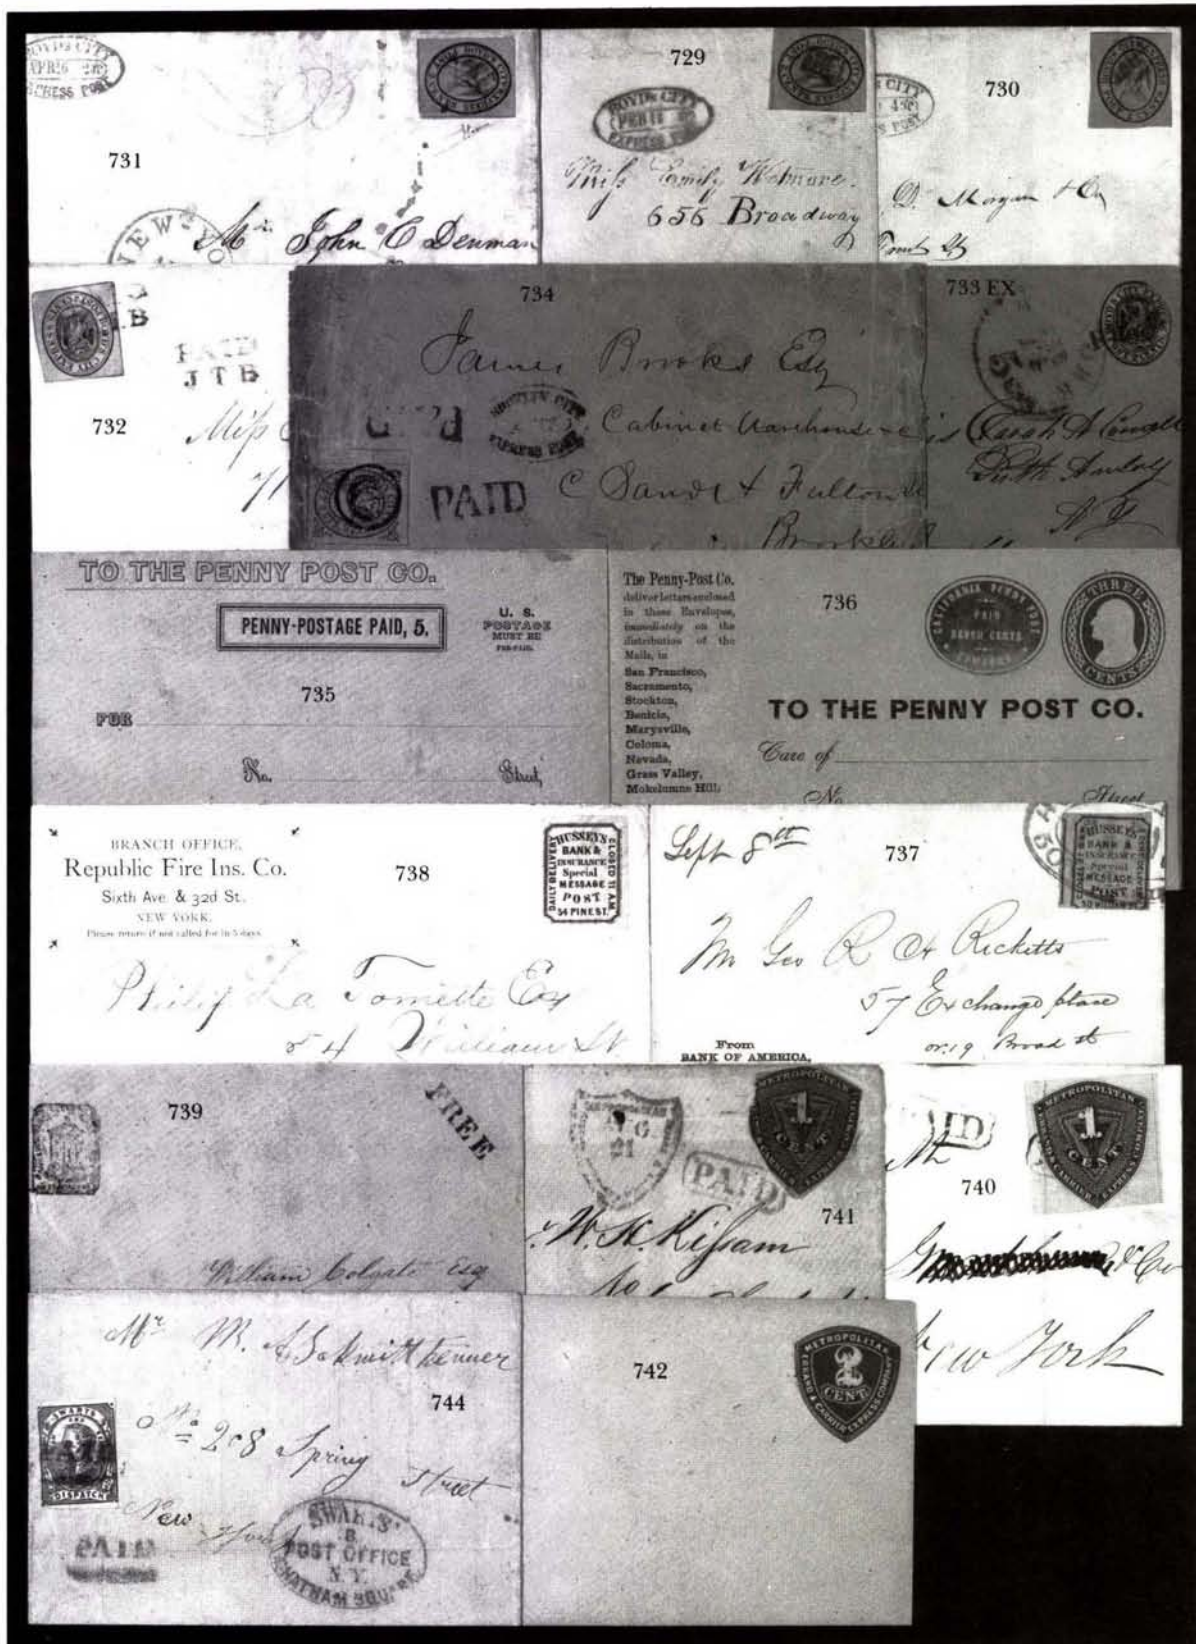 BOYD'S CITY
APR 26
EXPRESS POST
731
NEW
Mr. John C Denman
729
BOYD'S CITY
FEB 11
EXPRESS POST
Miss Emily Wetmore.
656 Broadway
730
CITY
POST
D. Morgan & Co
PAID
J T B
732
Miss
734
James Brooks Esq
BROOKLYN CITY
EXPRESS POST
PAID
Cabinet Warehouse
Cor Sands & Fulton
Brookl
733 EX
Sarah A
N Y
TO THE PENNY POST CO.
PENNY-POSTAGE PAID, 5.
U. S.
POSTAGE
MUST BE
PRE-PAID.
735
FOR
No. Street,
The Penny-Post Co.
deliver letters enclosed
in these Envelopes,
immediately on the
distribution of the
Mails, in
San Francisco,
Sacramento,
Stockton,
Benicia,
Marysville,
Coloma,
Nevada,
Grass Valley,
Mokelumne Hill;
736
CALIFORNIA PENNY POST
PAID
SEVEN CENTS
COMPANY
THREE
CENTS
TO THE PENNY POST CO.
Care of
No. Street
BRANCH OFFICE,
Republic Fire Ins. Co.
Sixth Ave. & 32d St.,
NEW YORK.
Please return if not called for in 5 days
738
DAILY DELIVERY
HUSSEY'S
BANK &
INSURANCE
Special
MESSAGE
POST
54 PINE ST.
CLOSED 11 AM
Philip La Tomette Esq
54 William St
Sept 8th
737
HUSSEY'S
BANK &
INSURANCE
Special
MESSAGE
POST
Mr Geo R A Ricketts
57 Exchange place
or 19 Broad st
From
BANK OF AMERICA,
739
FREE
William Colgate Esq
AUG
21
PAID
METROPOLITAN
1
CENT
741
W. H. Kissam
No
PAID
740
METROPOLITAN
1
CENT
ERRAND & CARRIER EXPRESS COMPANY
& Co
New York
Mr. W.
744
No 208 Spring
Street
New York
SWARTS
DISPATCH
PAID
SWARTS'
B
POST OFFICE
N.Y.
CHATHAM SQUARE
742
METROPOLITAN
2
CENT
ERRAND & CARRIER EXPRESS COMPANY